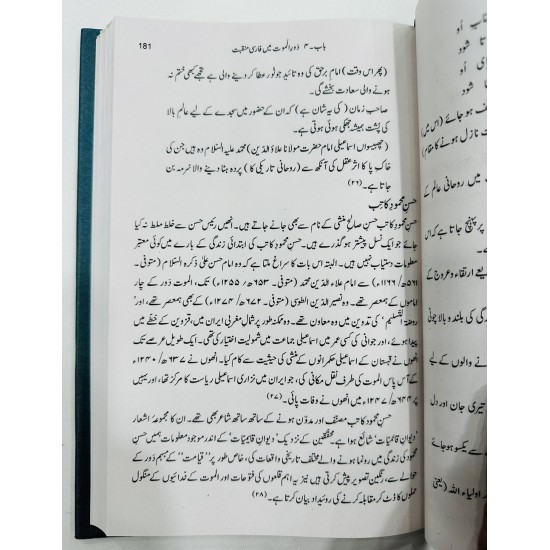 باب۔ ۴ دَورِ الَموت میں فارسی منقبت 181
(پھر اس وقت) امام برحق کی وہ تائید جو نور عطا کر دینے والی ہے تجھے کبھی ختم نہ
ہونے والی سعادت بخشے گی۔
صاحب زمان (کی یہ شان ہے) کہ ان کے حضور میں سجدے کے لیے عالمِ بالا
کی پشت ہمیشہ جھکی ہوئی ہوتی ہے۔
(چھبیسواں اسماعیلی امام حضرت مولانا علاؤ الدّین) محمّد علیہ السّلام وہ ہیں جن کی
خاکِ پا کا اثر عقل کی آنکھ سے (روحانی تاریکی کا) پردہ ہٹا دینے والا سُرمہ بن
جاتا ہے۔(۲۶)
حسن محمود کاتب
حسن محمود کاتب حسن صالح منشی کے نام سے بھی جانے جاتے ہیں۔ انھیں رئیس حسن سے خلط ملط نہ کیا
جائے جو ایک نسل پیشتر ہو گذرے ہیں۔ حسن محمود کاتب کی ابتدائی زندگی کے بارے میں کوئی معتبر
معلومات دستیاب نہیں ہیں۔ البتہ اس کا سراغ ملتا ہے کہ وہ امام حسن علیٰ ذکرہ السّلام (متوفی۔
۵۶۱ھ/ ۱۱۶۶ء) سے امام علاؤ الدّین محمد (متوفی۔ ۶۵۳ھ/ ۱۲۵۵ء) تک، الموت دَور کے چار
اماموں کے ہمعصر تھے۔ وہ نصیر الدّین الطوسی (متوفی۔ ۶۷۲ھ/ ۱۲۷۴ء) کے بھی ہمعصر تھے، اور
'روضۂ التسلیم' کی تدوین میں وہ معاون تھے۔ وہ ممکنہ طور پر شمال مغربی ایران میں، قزوین کے خطّے میں
پیدا ہوئے، اور جوانی کی کسی عمر میں اسماعیلی جماعت میں شمولیت اختیار کی تھی۔ ایک طویل عرصے تک
انھوں نے قہستان کے اسماعیلی حکمرانوں کے منشی کی حیثیت سے کام کیا۔ انھوں نے ۶۳۷ھ/ ۱۲۴۰ء
کے آس پاس الموت کی طرف نقل مکانی کی، جو ایران میں نزاری اسماعیلی ریاست کا مرکز تھا، اور یہیں
پر ۶۴۴ھ/ ۱۲۴۷ء میں انھوں نے وفات پائی۔(۲۷)
حسن محمود کاتب مصنف اور مدوّن ہونے کے ساتھ ساتھ شاعر بھی تھے۔ ان کا مجموعۂ اشعار
'دیوانِ قائمیّات' شائع ہوا ہے۔ محققین کے نزدیک 'دیوانِ قائمیّات' کے اندر موجود معلومات ہمیں حسن
محمود کی زندگی میں رونما ہونے والے مختلف تاریخی واقعات کی، خاص طور پر ''قیامت'' کے مبہم دَور کے
سلسلے میں، رنگین تصویر پیش کرتی ہیں نیز یہ اہم قلعوں کی فتوحات اور الموت کے فدائیوں کے منگول
حملوں کا ڈٹ کر مقابلہ کرنے کی روئیداد بیان کرتا ہے۔(۲۸)